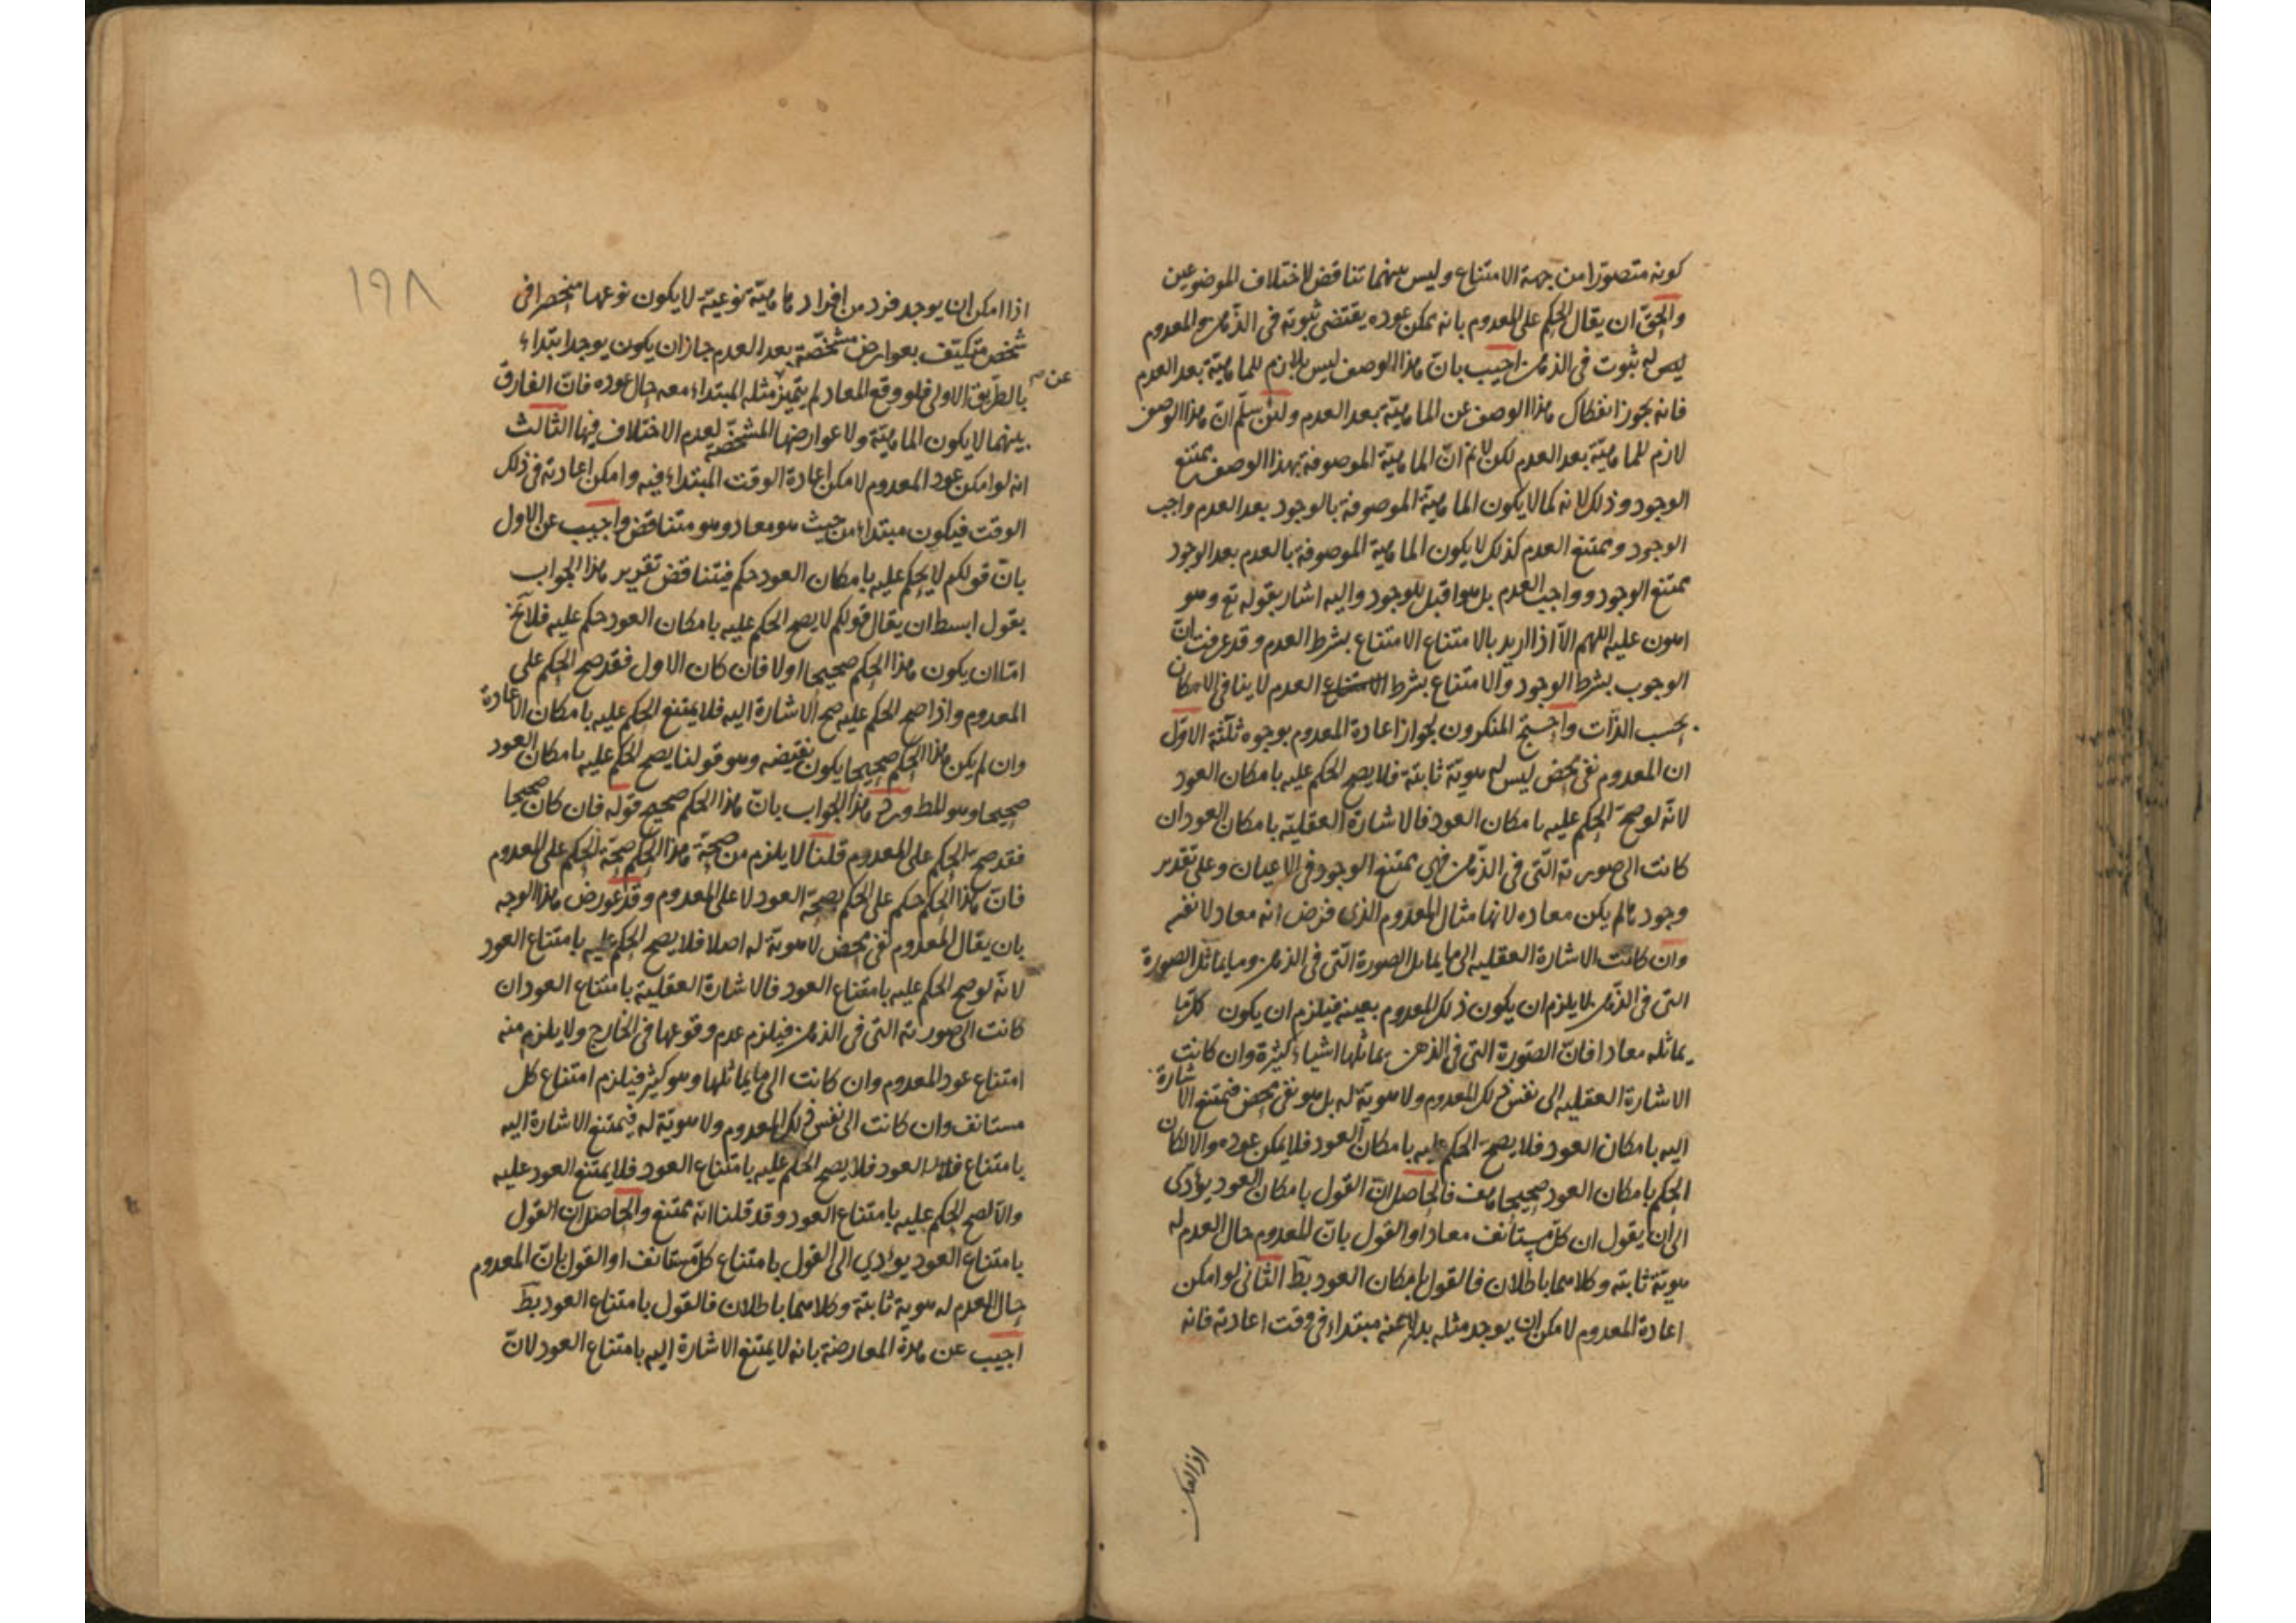 كونه متصورا من جهة الامتناع وليس بينهما تناقض لاختلاف الموضوعين
والحق ان يقال الحكم على المعدوم بانه يمكن عوده يقتضى ثبوته فى الذهن والمعدوم
ليس له ثبوت فى الذهن اجيب بان هذا الوصف ليس بلازم للماهية بعد العدم
فانه يجوز انفكاك هذا الوصف عن الماهية بعد العدم ولئن سلم ان هذا الوصف
لازم للماهية بعد العدم لكن لا نم ان الماهية الموصوفة بهذا الوصف يمتنع
الوجود وذلك لانه كما لا يكون الماهية الموصوفة بالوجود بعد العدم واجب
الوجود وممتنع العدم كذلك لا يكون الماهية الموصوفة بالعدم بعد الوجود
ممتنع الوجود وواجب العدم بل هو اقبل للوجود واليه اشار بقوله تع وهو
اهون عليه اللهم الا اذا اريد بالامتناع الامتناع بشرط العدم وقد عرفت ان
الوجوب بشرط الوجود والامتناع بشرط العدم لا ينافى الامكان
بحسب الذات واحتج المنكرون لجواز اعادة المعدوم بوجوه ثلثة الاول
ان المعدوم نفى محض ليس له هوية ثابتة فلا يصح الحكم عليه بامكان العود
لانه لو صح الحكم عليه بامكان العود فالاشارة العقلية بامكان العود ان
كانت الى صورته التى فى الذهن فهى ممتنع الوجود فى الاعيان وعلى تقدير
وجودها لم يكن معاده لانها مثال المعدوم الذى فرض انه معاد لا نفسه
وان كانت الاشارة العقليه الى ما يماثل الصورة التى فى الذهن وما يماثل الصورة
التى فى الذهن لا يلزم ان يكون ذلك المعدوم بعينه فيلزم ان يكون كل ما
يماثله معادا فان الصورة التى فى الذهن يماثلها اشياء كثيرة وان كانت
الاشارة العقليه الى نفس ذلك المعدوم ولا هوية له بل هو نفى محض فيمتنع الاشارة
اليه بامكان العود فلا يصح الحكم عليه بامكان العود فلا يمكن عوده والا لكان
الحكم بامكان العود صحيحا هف فالحاصل ان القول بامكان العود يؤدى
الى ان يقول ان كل مستأنف معاد او القول بان للمعدوم حال العدم له
هوية ثابته وكلاهما باطلان فالقول بامكان العود بط الثانى لو امكن
اعادة المعدوم لامكن ان يوجد مثله بدلا عنه مبتداء فى وقت اعادته فانه
اذا امكن
١٩٨
اذا امكن ان يوجد فرد من افراد ماهية نوعية لا يكون نوعها منحصرا فى
شخص متكيف بعوارض مشخصة بعد العدم جاز ان يكون يوجد ابتداء
بالطريق الاولى فلو وقع المعاد لم يتميز مثله المبتداء معه حال عوده فان الفارق
عن صـ
بينهما لا يكون الماهية ولا عوارضها المشخصة لعدم الاختلاف فيها الثالث
انه لو امكن عود المعدوم لامكن اعادة الوقت المبتداء فيه وامكن اعادته فى ذلك
الوقت فيكون مبتداء من حيث هو معاد وهو متناقض واجيب عن الاول
بان قولكم لا يحكم عليه بامكان العود حكم فيتناقض تقرير هذا الجواب
بقول ابسط ان يقال قولكم لا يصح الحكم عليه بامكان العود حكم عليه فلا يخ
اما ان يكون هذا الحكم صحيحا اولا فان كان الاول فقد صح الحكم على
المعدوم واذا صح الحكم عليه صح الاشارة اليه فلا يمتنع الحكم عليه بامكان الاعادة
وان لم يكن هذا الحكم صحيحا يكون نقيضه وهو قولنا يصح الحكم عليه بامكان العود
صحيحا وهو المط ورد هذا الجواب بان هذا الحكم صحيح قوله فان كان صحيحا
فقد صح الحكم على المعدوم قلنا لا يلزم من صحة هذا الحكم صحة الحكم على المعدوم
فان هذا الحكم حكم على الحكم بصحة العود لا على المعدوم وقد عورض هذا الوجه
بان يقال المعدوم نفى محض لا هوية له اصلا فلا يصح الحكم عليه بامتناع العود
لانه لو صح الحكم عليه بامتناع العود فالاشارة العقلية بامتناع العود ان
كانت الى صورته التى فى الذهن فيلزم عدم وقوعها فى الخارج ولا يلزم منه
امتناع عود المعدوم وان كانت الى ما يماثلها وهو كثير فيلزم امتناع كل
مستانف وان كانت الى نفس ذلك المعدوم ولا هوية له فيمتنع الاشارة اليه
بامتناع العود فلا يصح الحكم عليه بامتناع العود فلا يمتنع العود عليه
والا لصح الحكم عليه بامتناع العود وقد قلنا انه ممتنع والحاصل ان القول
بامتناع العود يؤدي الى القول بامتناع كل مستانف او القول بان المعدوم
حال العدم له هوية ثابتة وكلاهما باطلان فالقول بامتناع العود بط
اجيب عن هذه المعارضة بانه لا يمتنع الاشارة اليه بامتناع العود لان